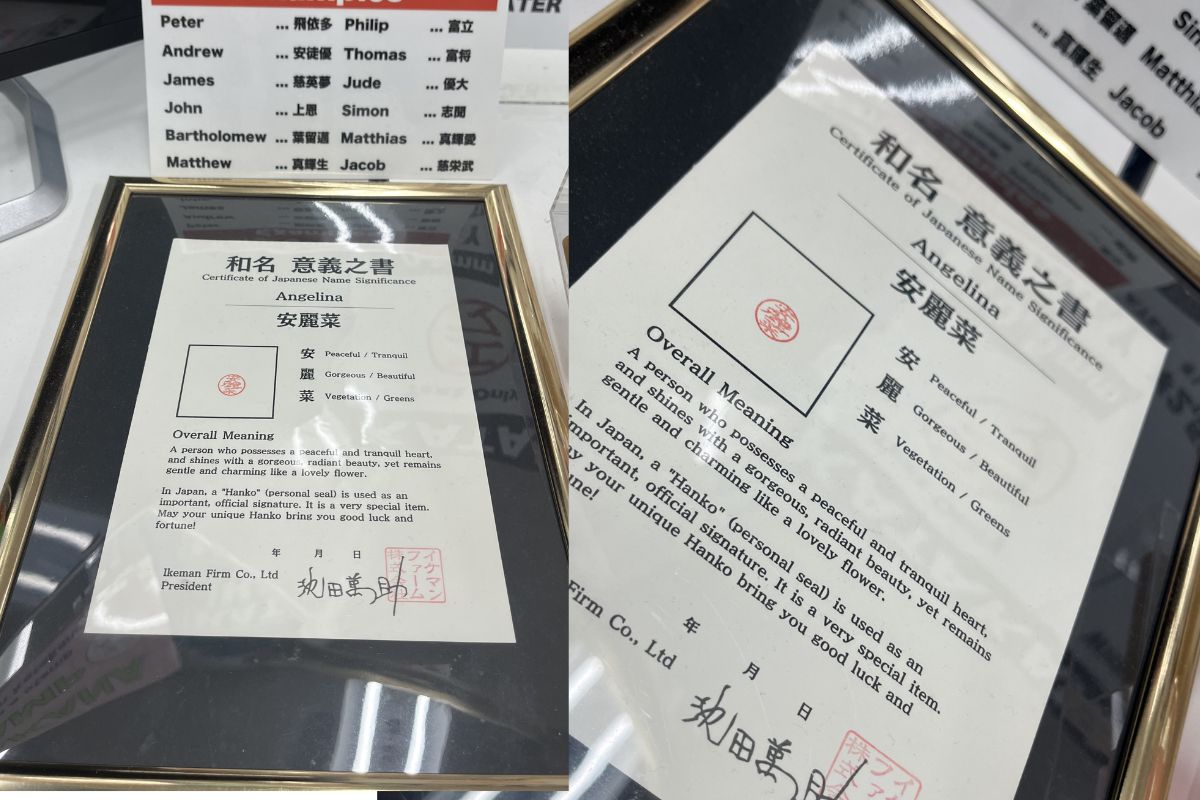 Peter ... 飛依多 Philip ... 富立
Andrew ... 安徒優 Thomas ... 富将
James ... 慈英夢 Jude ... 優大
John ... 上恩 Simon ... 志聞
Bartholomew ... 葉留邁 Matthias ... 真輝愛
Matthew ... 真輝生 Jacob ... 慈栄武
和名 意義之書
Certificate of Japanese Name Significance
Angelina
安麗菜
安 Peaceful / Tranquil
麗 Gorgeous / Beautiful
菜 Vegetation / Greens
Overall Meaning
A person who possesses a peaceful and tranquil heart,
and shines with a gorgeous, radiant beauty, yet remains
gentle and charming like a lovely flower.
In Japan, a "Hanko" (personal seal) is used as an
important, official signature. It is a very special item.
May your unique Hanko bring you good luck and
fortune!
年 月 日
Ikeman Firm Co., Ltd
President
イケマン
ファーム
株式会社
葉留邁 Matthi
... 真輝生 Jacob
和名 意義之書
Certificate of Japanese Name Significance
Angelina
安麗菜
安 Peaceful / Tranquil
麗 Gorgeous / Beautiful
菜 Vegetation / Greens
Overall Meaning
A person who possesses a peaceful and tranquil heart,
and shines with a gorgeous, radiant beauty, yet remains
gentle and charming like a lovely flower.
In Japan, a "Hanko" (personal seal) is used as an
important, official signature. It is a very special item.
ay your unique Hanko bring you good luck and
une!
年 月 日
Firm Co., Ltd